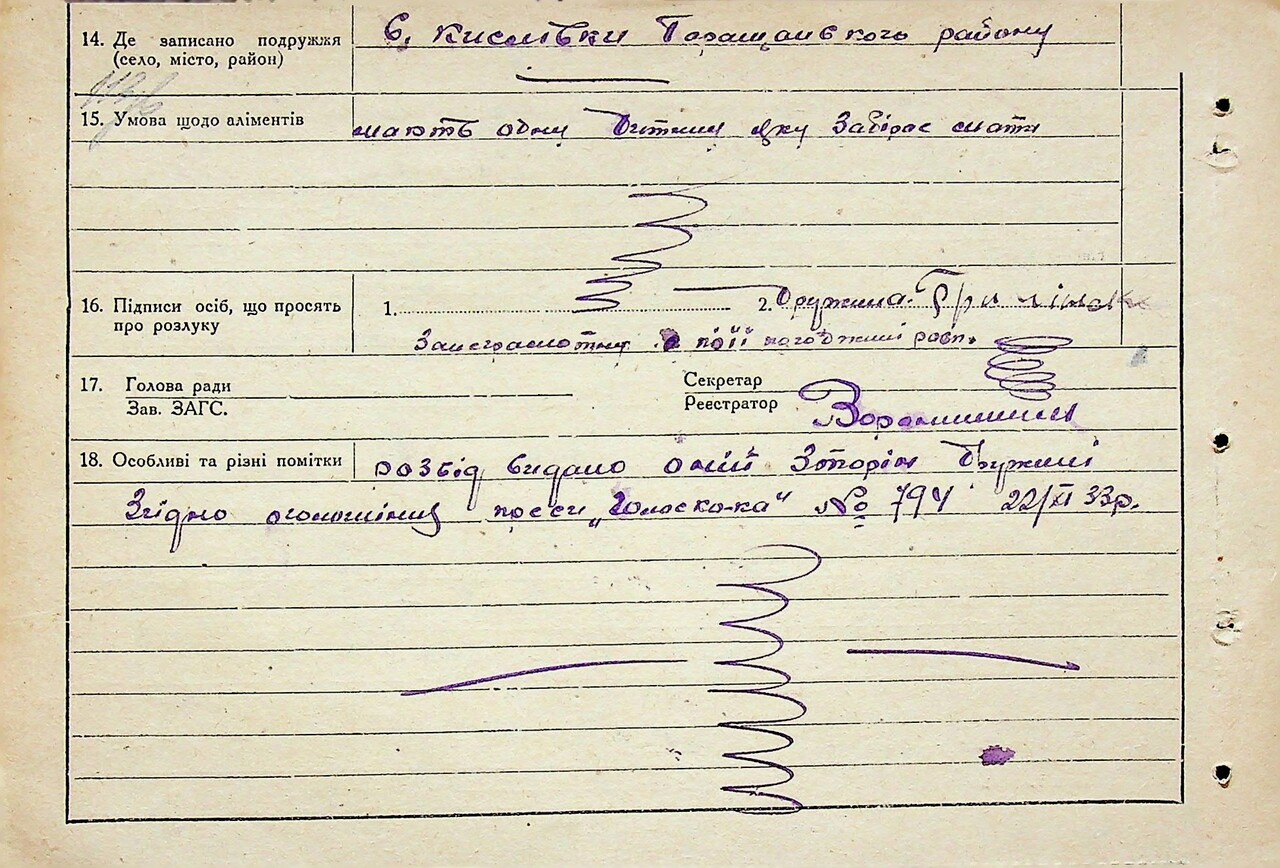 14. Де записано подружжя
(село, місто, район)
с. Кислівки Таращанського району
15. Умова щодо аліментів
мають одну дитину яку забірає мати
16. Підписи осіб, що просять
про розлуку
1. 2. Дружина
17. Голова ради
Зав. ЗАГС.
Секретар
Реєстратор
18. Особливі та різні помітки
розвід видано одній стороні дружині
Згідно оголошення преси № 794 22/XI 33р.